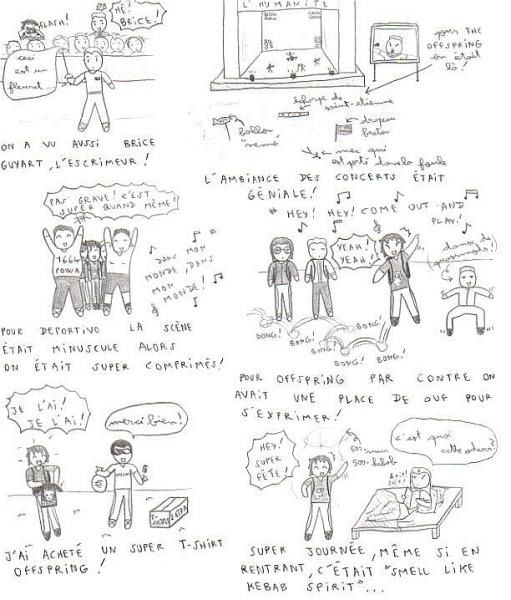 FLASH!
HÉ! BRICE!
ceci
est un
fleuret...
ON A VU AUSSI BRICE
GUYART, L'ESCRIMEUR!
L'HUMANITÉ
pour THE
OFFSPRING
on était
là!
écharpe de
saint-étienne
ballon
"nemo"
drapeau
breton
mec qui
est porté dans la foule
L'AMBIANCE DES CONCERTS ÉTAIT
GÉNIALE!
PAS GRAVE! C'EST
SUPER QUAND MÊME!
1664
POWA
DANS MON
MONDE, DANS
MON
MONDE!
POUR DEPORTIVO LA SCÈNE
ÉTAIT MINUSCULE ALORS
ON ÉTAIT SUPER COMPRIMÉS!
HEY! HEY! COME OUT AND
PLAY!
YEAH!
YEAH!
BOING! BOING! BOING! BOING! BOING! BOING!
POUR OFFSPRING PAR CONTRE ON
AVAIT UNE PLACE DE OUF POUR
S'EXPRIMER!
JE L'AI!
JE L'AI!
merci bien!
T-SHIRT EXTRA
J'AI ACHETÉ UN SUPER T-SHIRT
OFFSPRING!
HEY!
SUPER
FÊTE!
50%
50% kebab
c'est quoi
cette odeur?
SUPER JOURNÉE, MÊME SI EN
RENTRANT, C'ÉTAIT "SMELL LIKE
KEBAB SPIRIT"...